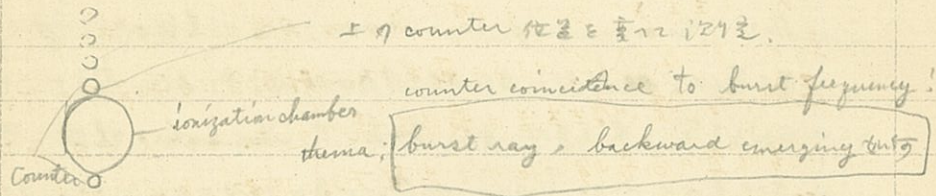 上ノ counter 位置を変へて測定.
counter coincidence to burst frequency!
ionization chamber
thema: burst ray, backward emerging
Counter